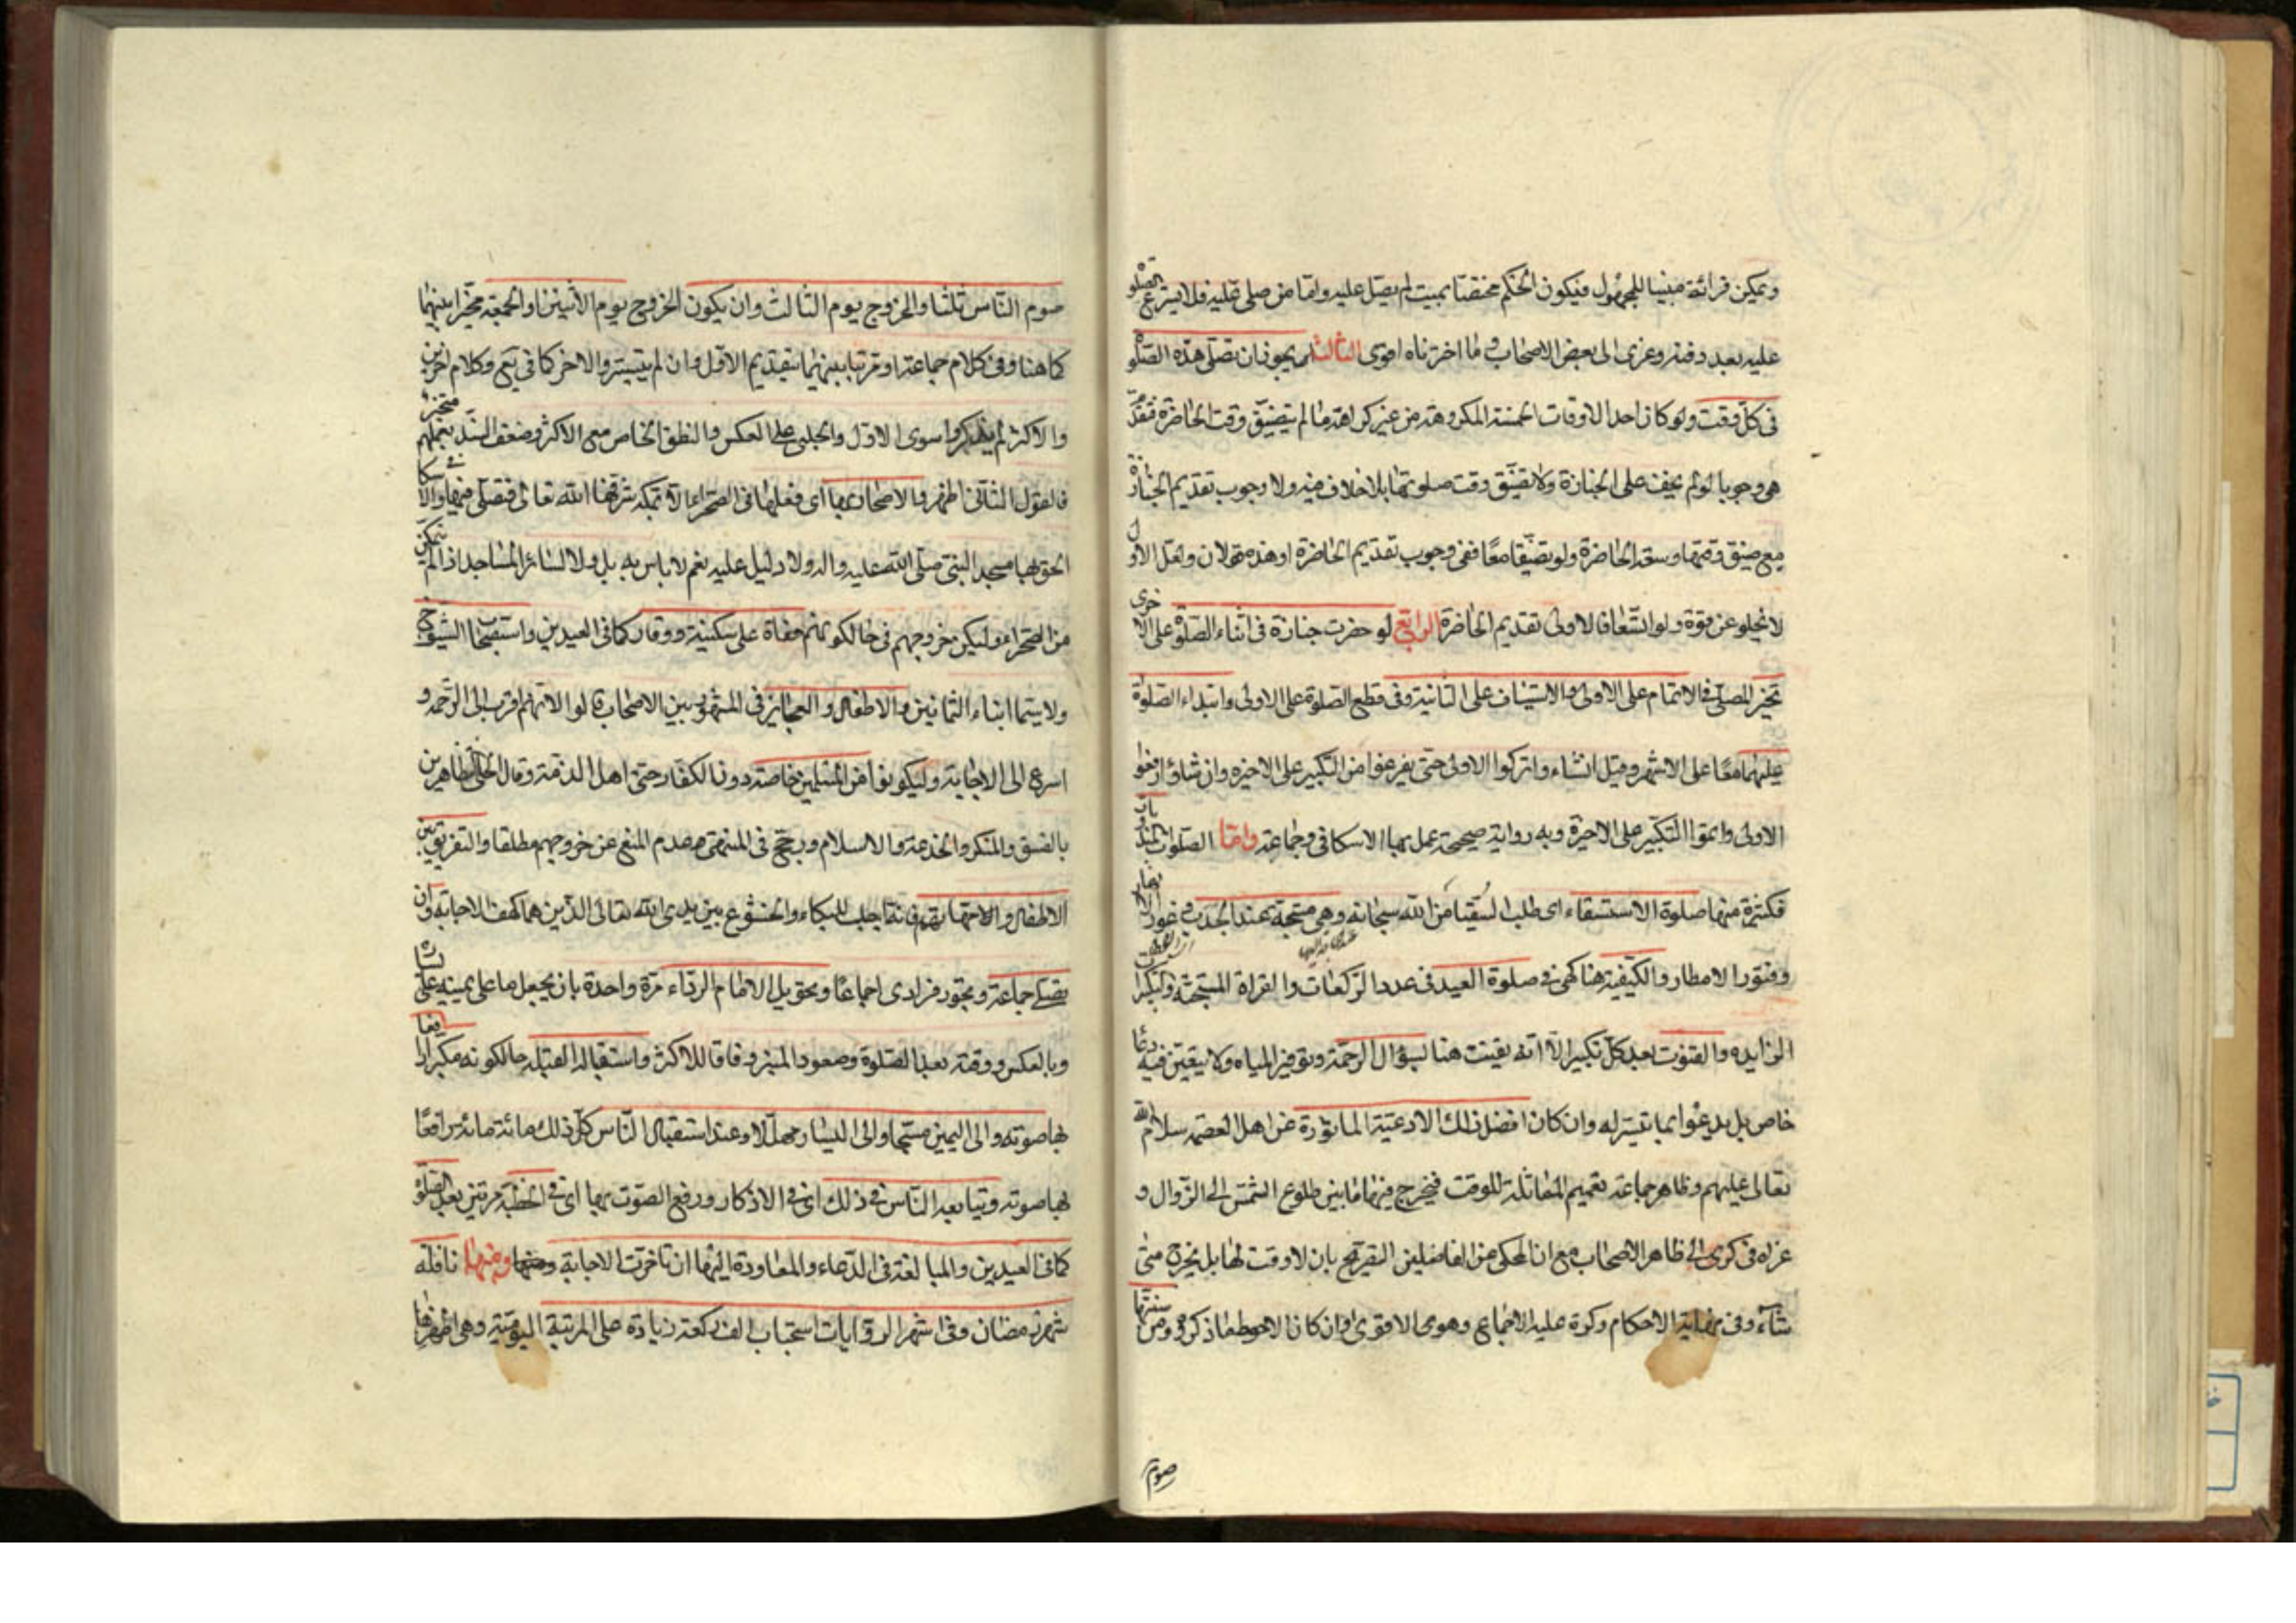 ويمكن قرائته مبنيا للمجهول فيكون الحكم مختصا بميت لم يصل عليه واما من صلى عليه فلا يشرع الصلوة
عليه بعد دفنه وعزى الى بعض الاصحاب وما اخترناه اقوى الثالث يجوز ان تصلى هذه الصلوة
فى كل وقت ولو كان احد الاوقات الخمسة المكروهة من غير كراهة ما لم يتضيق وقت الحاضرة فتقدم
هى وجوبا لو لم يخف على الجنازة ولا تضيق وقت صلوتها بلا خلاف فيه ولا وجوب تقديم الجنازة
مع ضيق وقتها وسعة الحاضرة ولو تضيقا معا ففى وجوب تقديم الحاضرة او هذه قولان ولعل الاول
لا يخلو عن قوة ولو اتسعا فالاولى تقديم الحاضرة الرابع لو حضرت جنازة فى اثناء الصلوة على الاخرى
تخير المصلى فى الاتمام على الاولى والاستيناف على الثانية وفى قطع الصلوة على الاولى وابتداء الصلوة
عليهما معا على الاشهر وقيل ان شاء واتركوا الاولى حتى يفرغوا من التكبير على الاخيرة وان شاؤا رفعوا
الاولى واتموا التكبير على الاخيرة وبه رواية صحيحة عمل بها الاسكافى وجماعة واما الصلوات المندوبات
فكثيرة منها صلوة الاستسقاء اى طلب السقيا من الله سبحانه وهى مستحبة عند الجدب وغور الانهار
وفتور الامطار والكيفية هنا كهى فى صلوة العيد فى عدد الركعات والقراة المستحبة والتكبيرات
الزايده والقنوت بعد كل تكبير الا انه يقنت هنا بسؤال الرحمة وتوفير المياه ولا يتعين فيه دعاء
خاص بل يدعوا بما تيسر له وان كان افضل ذلك الادعية الماثورة عن اهل العصمة سلام الله
تعالى عليهم وظاهر جماعة تعميم المماثلة للوقت فيخرج فيها ما بين طلوع الشمس الى الزوال و
عزاه فى كرى الى ظاهر الاصحاب مع ان المحكى عن الفاضلين التصريح بان لا وقت لها بل يخرج متى
شاء وفى نهاية الاحكام وكرة عليه الاجماع وهو الاقوى وان كان الاحوط ما ذكروه ومن سننها
صوم
صوم الناس ثلثا والخروج يوم الثالث وان يكون الخروج يوم الاثنين او الجمعة مخيرا بينهما
كما هنا وفى كلام جماعة او مرتبا بينهما بتقديم الاول وان لم يتيسر والاخر كما فى يع وكلام اخرين
والاكثر لم يذكروا سوى الاول والحلبى على العكس والنطق الخاص مع الاكثر وضعف السند منجبر بعملهم
فالقول الثانى اظهر والاصحار بها اى فعلها فى الصحراء الا بمكه شرفها الله تعالى فتصلى فيها والاسكافى
الحق بها مسجد النبى صلى الله عليه واله ولا دليل عليه نعم لا باس به بل ولا لسائر المساجد اذا لم يتمكن
من الصحراء وليكن خروجهم فى حال كونهم حفاة على سكينة ووقار كما فى العيدين واستصحاب الشيوخ
ولا سيما ابناء الثمانين والاطفال والعجايز فى المشهور بين الاصحاب قالوا لانهم اقرب الى الرحمة و
اسرع الى الاجابة وليكونوا من المسلمين خاصة دون الكفار حتى اهل الذمة وقال الحلى المتظاهرين
بالفسق والمنكر والخدعة والاسلام ورجح فى المنتهى عدم المنع عن خروجهم مطلقا والتفريق بين
الاطفال والامهاتهم فانه اجلب للبكاء والخشوع بين يدى الله تعالى الذين هما كهف الاجابة وان
تصلى جماعة ويجوز فرادى اجماعا وتحويل الامام الرداء مرة واحدة بان يجعل ما على يمينه على يساره
وبالعكس ووقته بعد الصلوة وصعود المنبر وفاقا للاكثر واستقباله القبله حال كونه مكبرا رافعا
بها صوته والى اليمين مسبحا والى اليسار مهللا وعند استقبال الناس كل ذلك مائة مائة رافعا
بها صوته ويتابعه الناس فى ذلك اى فى الاذكار ورفع الصوت بها اى فى الخطبة مرتين بعد الصلوة
كما فى العيدين والمبالغة فى الدعاء والمعاودة اليها ان تاخرت الاجابة ومنها نافلة
شهر رمضان وفى اشهر الروايات استحباب الف ركعة زيادة على المرتبة اليومية وهى اظهرها